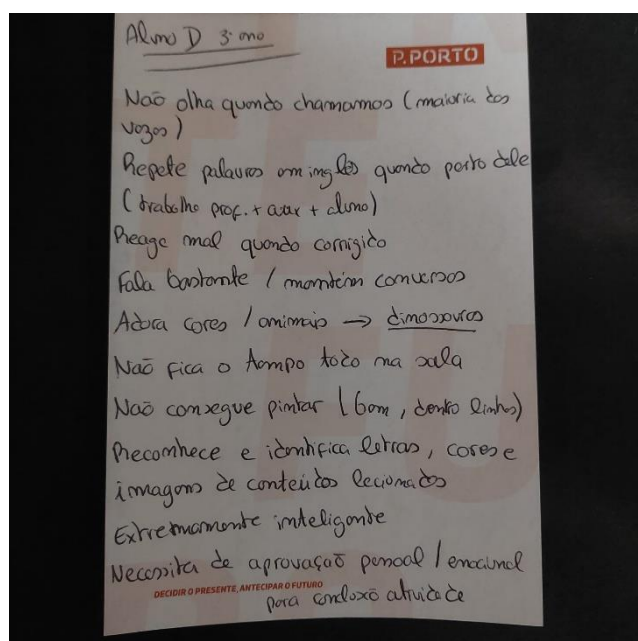 Aluno D 3º ano
P.PORTO
Não olha quando chamamos (maioria das
vezes)
Repete palavras em inglês quando perto dele
(trabalho prof. + aux + aluno)
Reage mal quando corrigido
Fala bastante / mantém conversas
Adora cores / animais → dinossauros
Não fica o tempo todo na sala
Não consegue pintar (bem, dentro linhas)
Reconhece e identifica letras, cores e
imagens de conteúdos lecionados
Extremamente inteligente
Necessita de aprovação pessoal / emocional
DECIDIR O PRESENTE, ANTECIPAR O FUTURO
para conclusão atividade